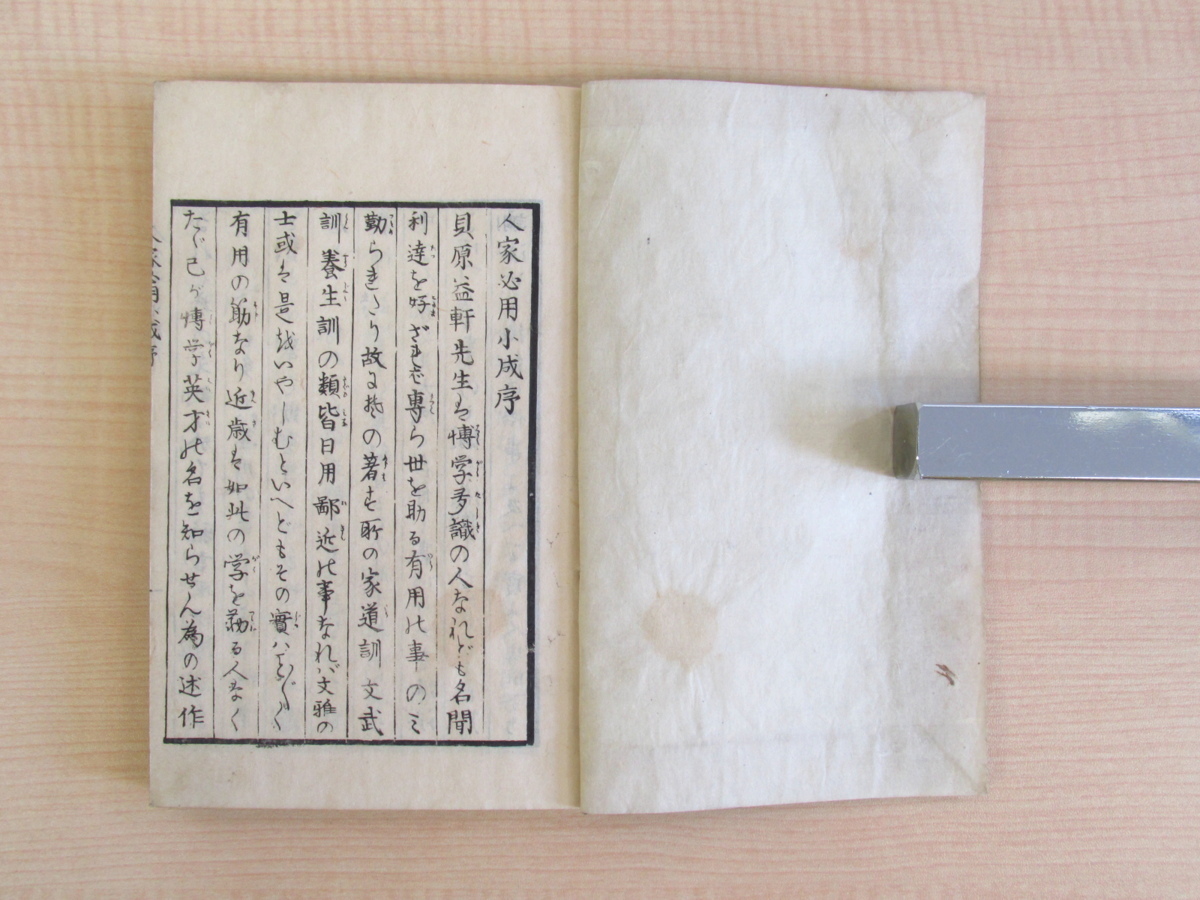 人家必用小成序
貝原益軒先生は博学多識の人なれども名聞
利達を好ざれば専ら世を助る有用の事のミ
勤られたり故に其の著す所の家道訓文武
訓養生訓の類皆日用鄙近の事なれバ文雅の
士或は是をいやしむといへどもその實ハこと〴〵く
有用の筋なり近歳は如此の学を勤る人なく
たゞ己が博学英才の名を知らせん為の述作